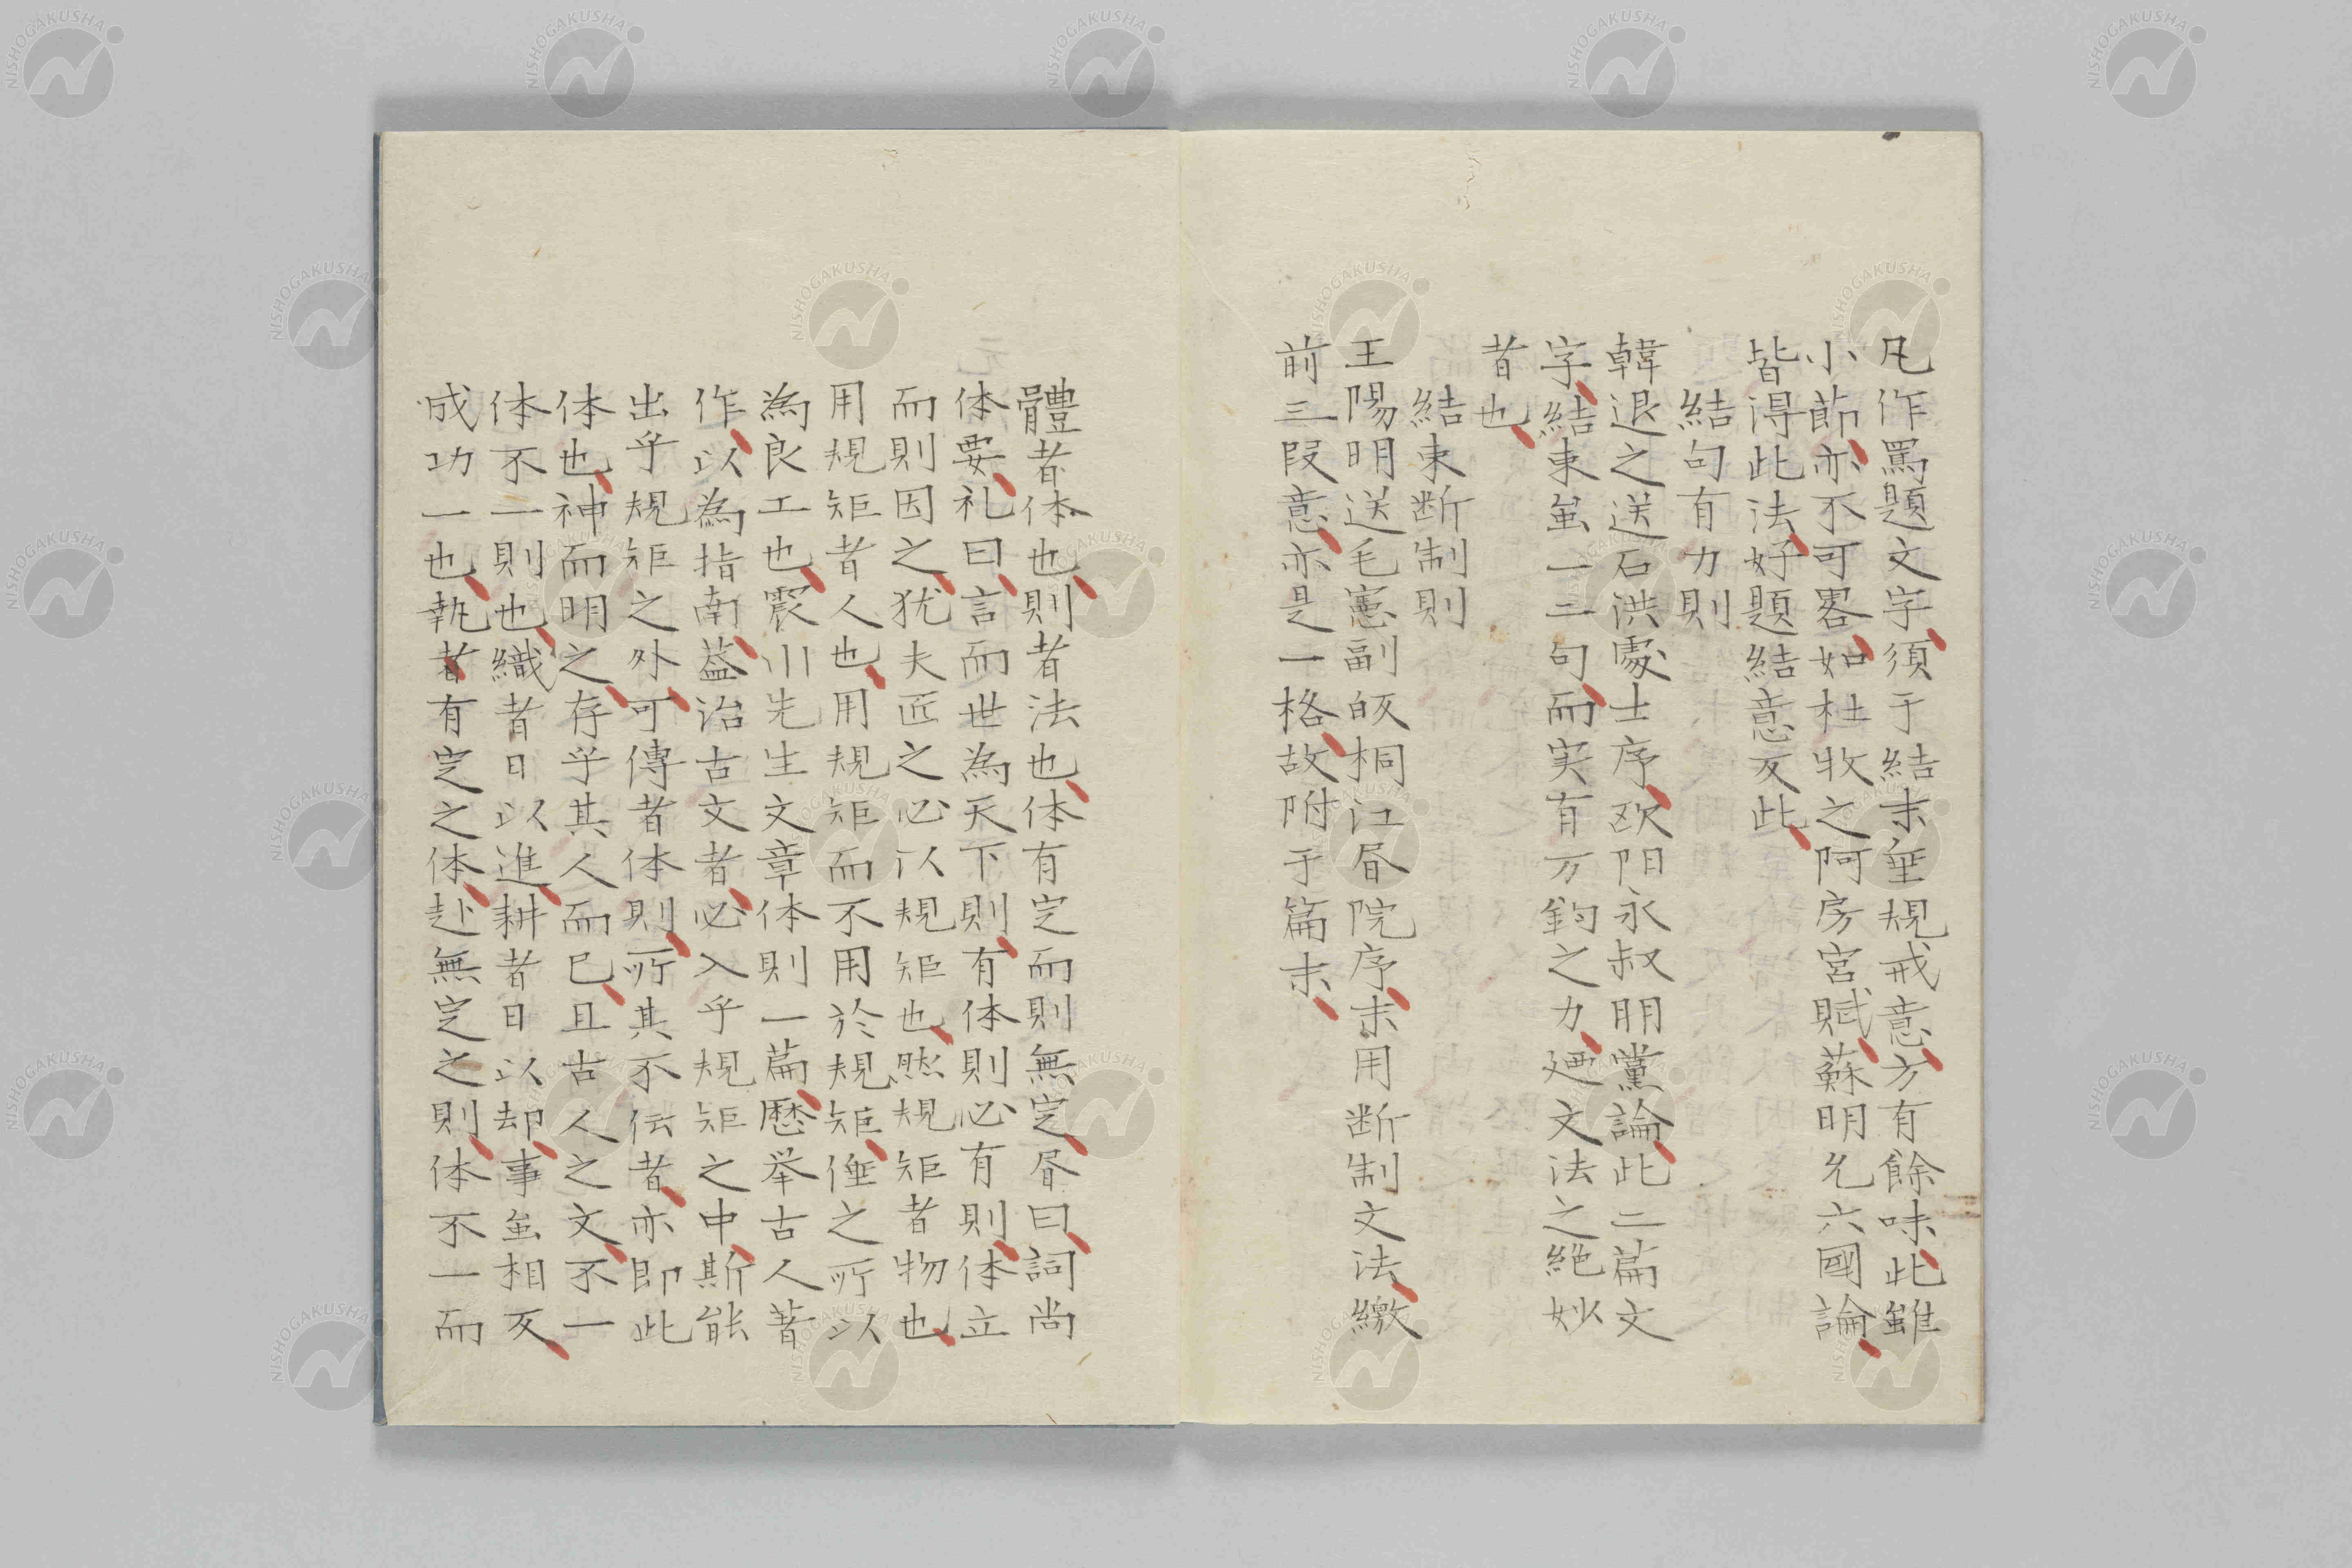 凡作罵題文字須于結末垂規戒意方有餘味此雖
小節亦不可畧如杜牧之阿房宮賦蘇明允六國論
皆得此法好題結意反此
結句有力則
韓退之送石洪處士序欧阳永叔朋黨論此二篇文
字結束虽一二句而实有万鈞之力廼文法之絶妙
者也
結束断制則
王陽明送毛憲副致桐江昼院序末用断制文法繳
前三段意亦是一格故附于篇末
體者体也則者法也体有定而則無定昼曰詞尚
体要礼曰言而世為天下則有体則必有則体立
而則因之犹夫匠之必以規矩也然規矩者物也
用規矩者人也用規矩而不用於規矩倕之所以
為良工也震川先生文章体則一篇歴举古人著
作以為指南葢治古文者必入乎規矩之中斯能
出乎規矩之外可傳者体則所其不伝者亦即此
体也神而明之存乎其人而已且古人之文不一
体不一則也織者日以進耕者日以却事虽相反
成功一也執者有定之体赴無定之則体不一而
NISHOGAKUSHA